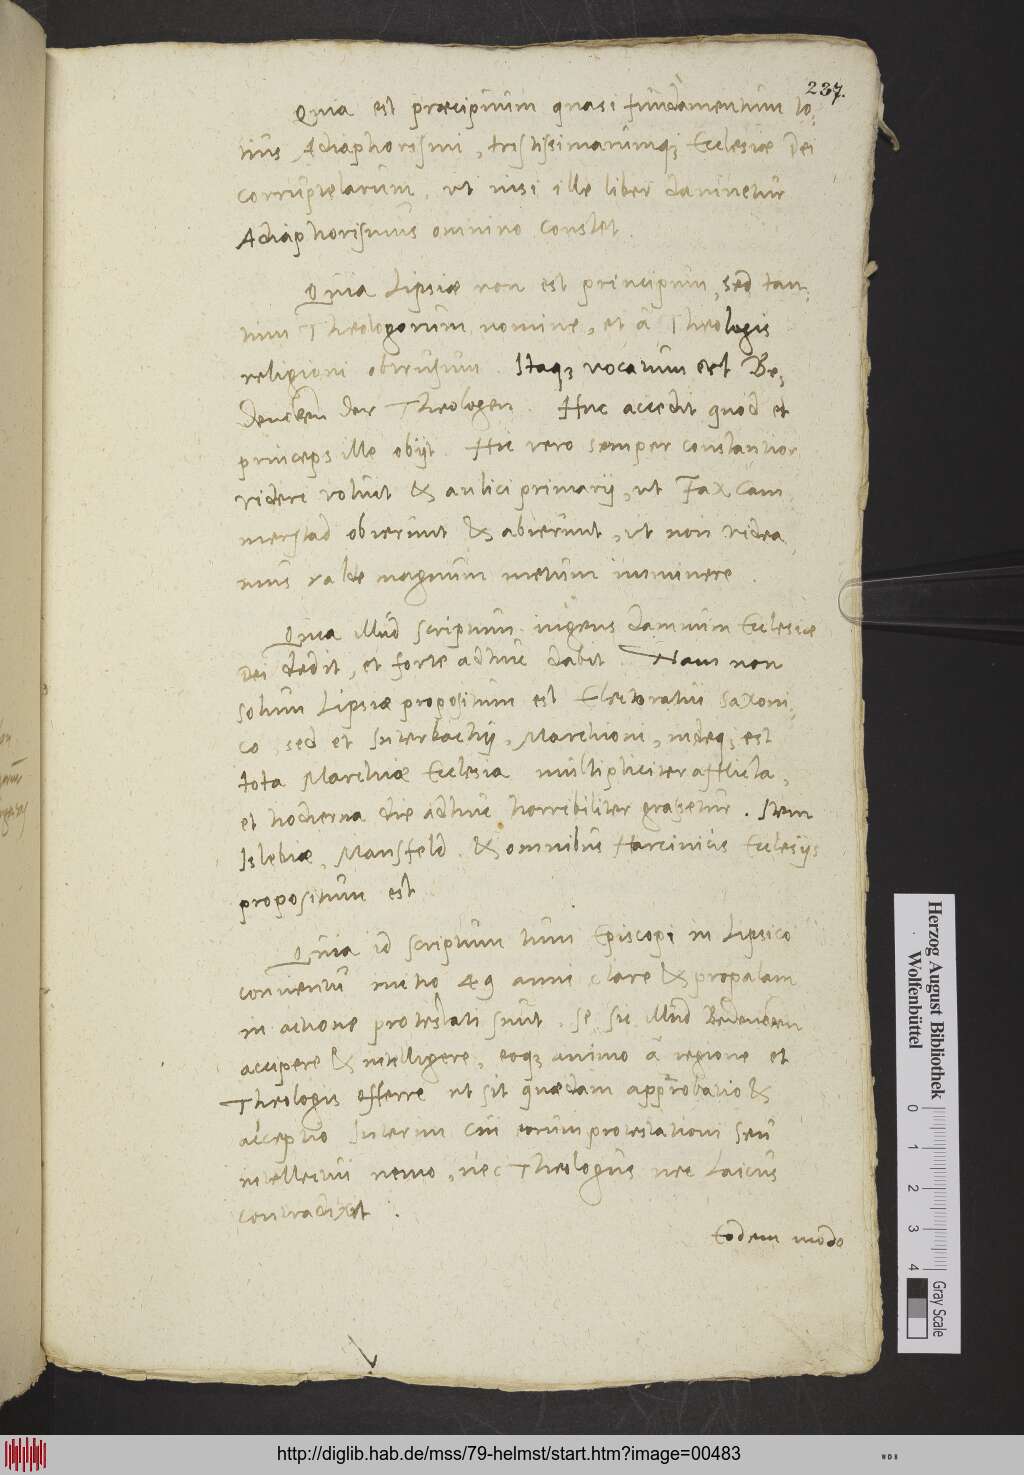 237.
Quia est praecipuum quasi fundamentum to-
tius Adiaphorismi, tristissimarumq; Ecclesiae Dei
corruptelarum, ut nisi ille liber damnetur
Adiaphorismus omnino constet.
Quia Lipsiae non est principum, sed tan-
tum Theologorum nomine, et à Theologis
religioni obtrusum. Itaq; vocatum est Be-
dencken der Theologen. Huc accedit quod et
princeps ille obijt. Hic vero semper constantior
videri voluit & aulici primarij, ut Fax Cam
merstad obierunt & abierunt, ut non videa
mus valde magnum metum imminere.
Quia illud scriptum ingens damnum Ecclesiae
Dei dedit, et forte adhuc dabit. Nam non
solum Lipsiae propositum est Electoratui Saxoni-
co, sed et Interbachij, Marchioni, indeq; est
tota Marchiae Ecclesia multipliciter afflicta,
et hodierna die adhuc horribiliter grassetur. Item
Islebiae, Mansfeld, & omnibus Harcinicis Ecclesijs
propositum est
Quia id scriptum tum Episcopi in Lipsico
conventu initio 49 anni clare & propalam
in actione protestati sunt, se sic illud Bedencken
accipere & intelligere, eoq; animo à regione et
Theologis offerre ut sit quaedam approbatio &
acceptio Interim cui eorum protestationi seu
intellectui nemo, nec Theologus nec Laicus
contradixit.
Eodem modo
Herzog August Bibliothek
Wolfenbüttel
0 1 2 3 4
Gray Scale
http://diglib.hab.de/mss/79-helmst/start.htm?image=00483